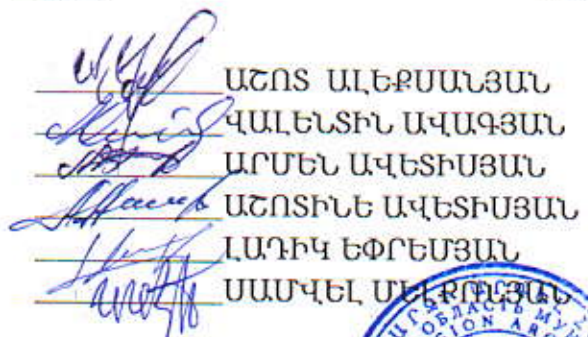 ԱՇՈՏ ԱԼԵՔՍԱՆՅԱՆ
ՎԱԼԵՆՏԻՆ ԱՎԱԳՅԱՆ
ԱՐՄԵՆ ԱՎԵՏԻՍՅԱՆ
ԱՇՈՏԻՆԵ ԱՎԵՏԻՍՅԱՆ
ԼԱԴԻԿ ԵՓՐԵՄՅԱՆ
ՍԱՄՎԵԼ ՄԵԼՔՈՆՅԱՆ
ОБЛАСТЬ